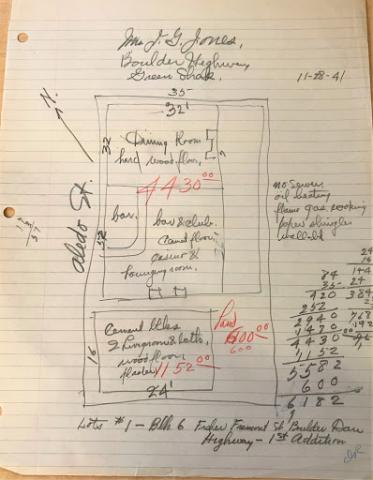 Mrs J. G. Jones,
Boulder Highway,
Green Shak.
11-28-41
35
32'
N.
Dining Room
hard wood floor,
32
4430.00
no sewer
oil heating
flame gas, cooking
paper shingles
Aledo St.
52
bar.
bar & club.
Cement floor
casino &
lounging room.
Cement tiles
2 Livgrooms & bath,
wood floor
plaster
1152.00
16
24'
Land
600.00
600
24
16
144
24
384
84
35
420
252
2940
1470
4430
1152
5582
600
6182
768
192
Lots #1 - Blk 6
Fremont St Boulder Dam
Highway - 1st Addition